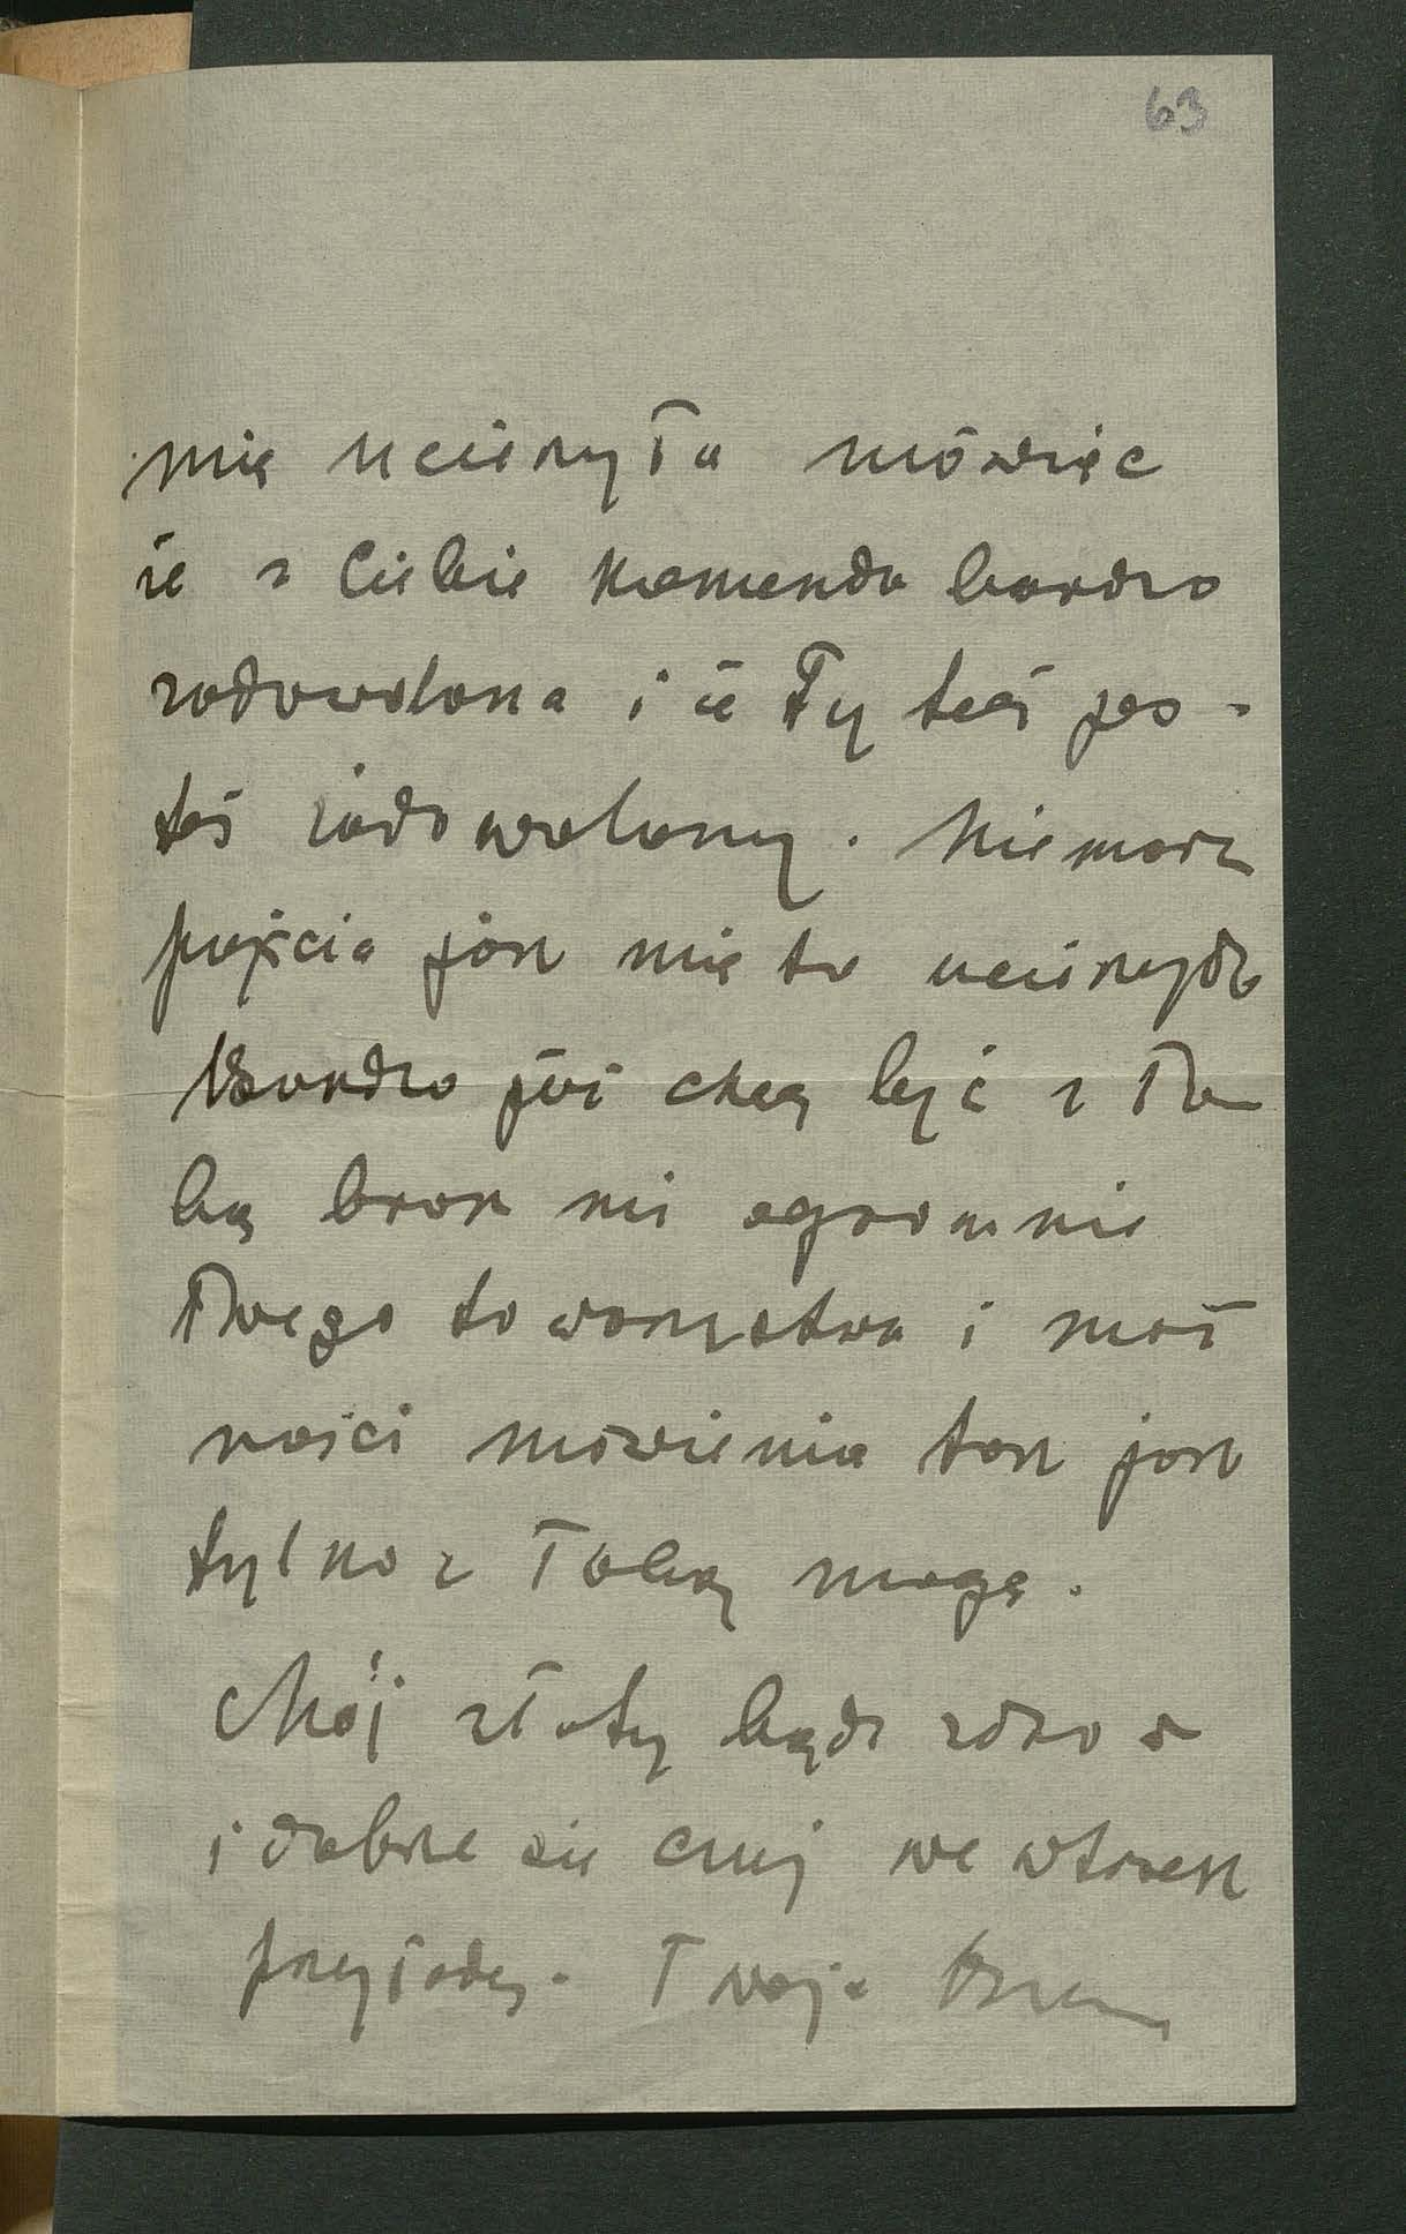 63
mię ucieszyła mówiąc
że z Ciebie Komenda bardzo
zadowolona i że Ty też jes-
teś zadowolony. Nie masz
pojęcia jak mię to ucieszyło
Bardzo już chcę być z To
bą brak mi ogromnie
Twego towarzystwa i moż
ności mówienia tak jak
tylko z Tobą mogę.
Mój złoty bądź zdrów
i dobrze się czuj we wtorek
przyjadę. Twoja